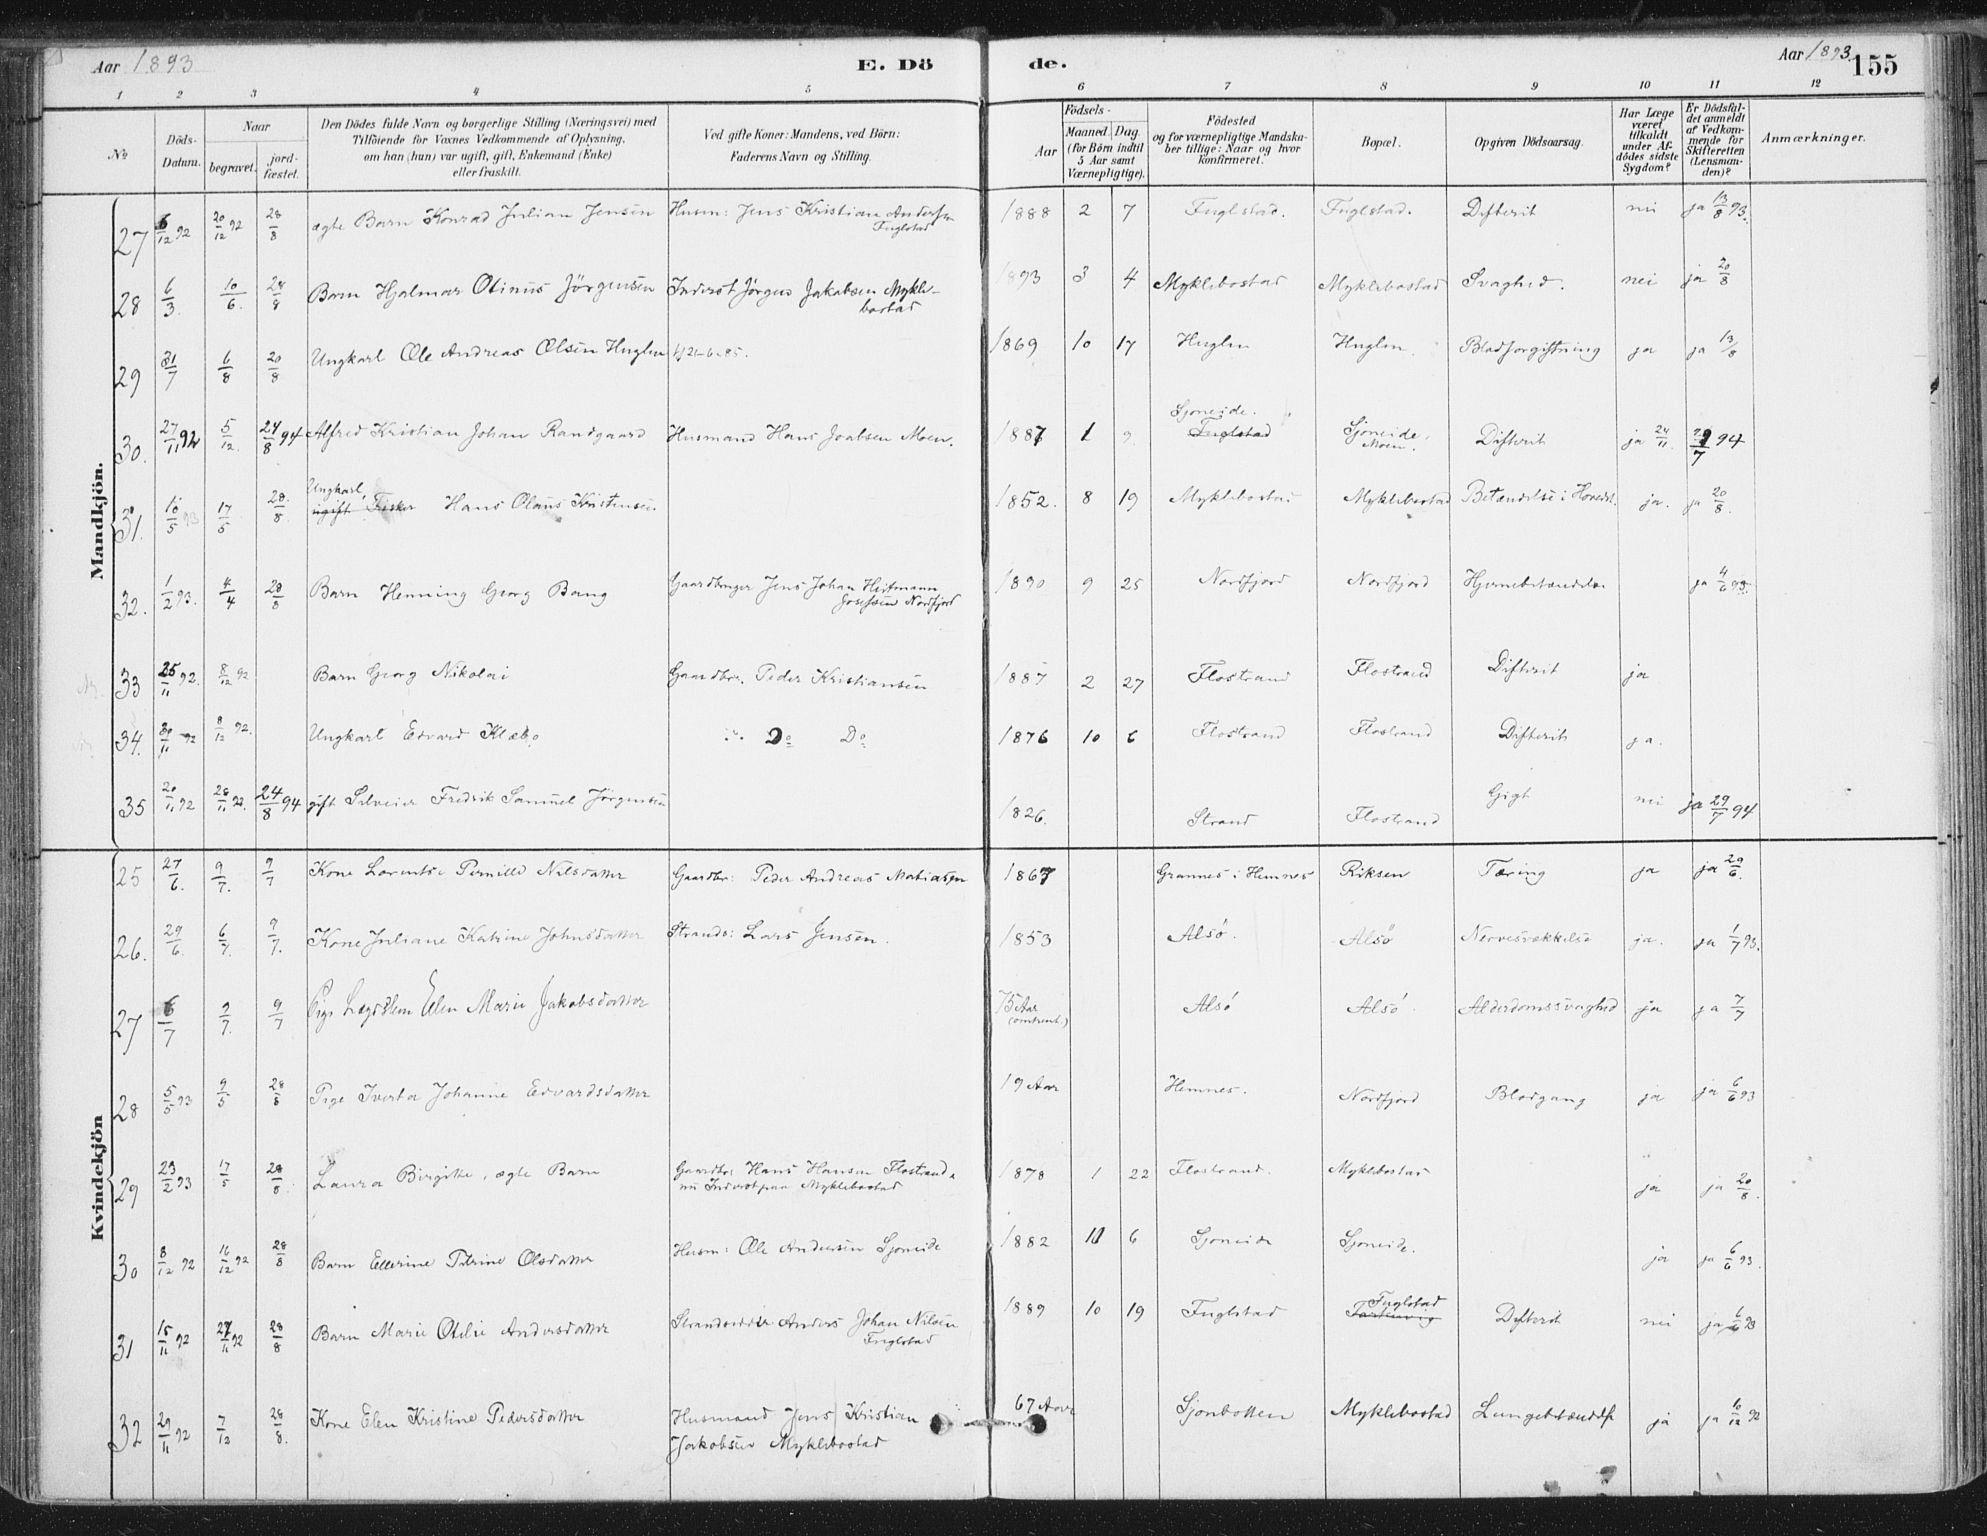 Aar 1893
E. Dö
de.
Aar 1893
155
1 2 3 4 5 6 7 8 9 10 11 12
No
Döds-Datum.
Naar
begravet.
jord-fæstet.
Den Dödes fulde Navn og borgerlige Stilling (Næringsvei) med
Tilföiende for Voxnes Vedkommende af Oplysning,
om han (hun) var ugift, gift, Enkemand (Enke)
eller fraskilt.
Ved gifte Koner: Mandens, ved Börn:
Faderens Navn og Stilling.
Födsels-
Aar
Maaned. Dag.
(for Börn indtil
5 Aar samt
Værnepligtige).
Födested
og for værnepligtige Mandska-
ber tillige: Naar og hvor
konfirmeret.
Bopæl.
Opgiven Dödsaarsag.
Har Læge
været
tilkaldt
under Af-
dödes sidste
Sygdom?
Er Dödsfal-
det anmeldt
af Vedkom-
mende for
Skifteretten
(Lensman-
den)?
Anmærkninger.
Mandkjön.
27 6/12 92 20/12 92 28/8 ægte Barn Konrad Julian Jensen Husm: Jens Kristian Andersen Fuglstad 1888 2 7 Fuglstad. Fuglstad. Difterit nei ja 13/8 93.
28 6/3. 10/6. 28/8 Barn Hjalmar Olinus Jörgensen Inderst Jørgen Jakobsen Myklebostad 1893 3 4 Myklebostad Myklebostad Svaghed. nei ja 20/8
29 31/7 6/8 20/8 Ungkarl Ole Andreas Olsen Huglen 21-6-85. 1869 10 17 Huglen Huglen. Blodforgiftning ja ja 13/8
30. 27/11 92 5/12. 24/8 94 Alfred Kristian Johan Randgaard Husmand Hans Joabsen Moen. 1887 1 9. Sjoneide. Fuglstad Sjoneide, Moen. Difterit ja 24/11. 29/7 94
31. 10/5 93 17/5 28/8. Ungkarl, ugift Fisker Hans Olaus Kristensen 1852. 8 19 Myklebostad Myklebostad Betændelse i Hovedet. ja. ja 20/8.
32. 1/2 93. 4/4 28/8 Barn Henning Georg Bang Gaardbruger Jens Johan Heitmann Josefsen Nordfjord 1890 9 25 Nordfjord Nordfjord Hjernebetændelse ja 4/6 93.
33 25/11 92. 8/12 92 Barn Georg Nikolai Gaardbr. Peder Kristiansen 1887 2 27 Flostrand Flostrand Difterit ja
34. 30/11 92 8/12 92. Ungkarl Edvard Klæbo Do Do 1876 10 6 Flostrand Flostrand Difterit ja.
35 20/11 92 28/11 92. 24/8 94 gift Selveier Fredrik Samuel Jörgensen 1826. Strand Flostrand Gigt nei ja 29/7 94
Kvindekjön
25 27/6. 9/7. 9/7 Kone Lorentse Pernille Nilsdatter Gaardbr: Peder Andreas Matiassen 1867 Grannes i Hemnes Riksen Tæring ja ja 29/6.
26. 29/6. 6/7. 9/7. Kone Juliane Katrine Johnsdatter Strands: Lars Jensen. 1853 Alsø. Alsø Nervesvækkelse ja. ja 1/7 93.
27 6/7 9/7. 9/7 Pige Lægdslem Elen Marie Jakobsdatter 75 Aar (omtrent) Alsø Alsø. Alderdomssvaghed ja ja 7/7
28 5/5 93 9/5 28/8 Pige Iverta Johanne Edvardsdatter 19 Aar Hemnes. Nordfjord Blodgang ja ja 6/6 93
29 23/2 93 17/5 28/8. Laura Birgitte, ægte Barn Gaardbr: Hans Hansen Flostrand, nu Inderst paa Myklebostad 1878 1 22 Flostrand. Myklebostad ja ja 20/8.
30 8/12 92 16/12 92 28/8 Barn Ellerine Petrine Olsdatter Husm: Ole Andersen Sjoneide 1882 11 6 Sjoneide Sjoneide. ja ja 6/6 93.
31 15/11 92 27/11 92 28/8 Barn Marie Otelie Andersdatter Strandsidder Anders Johan Nilsen Fuglstad 1889 10 19 Fuglstad Fuglstad Difterit nei ja 6/6 93
32 29/11 92 7/12 28/8. Kone Elen Kristine Pedersdatter Husmand Jens Kristian Jakobsen Myklebostad 67 Aar Sjonbotten Myklebostad Lungebetændelse ja ja 10/12 92